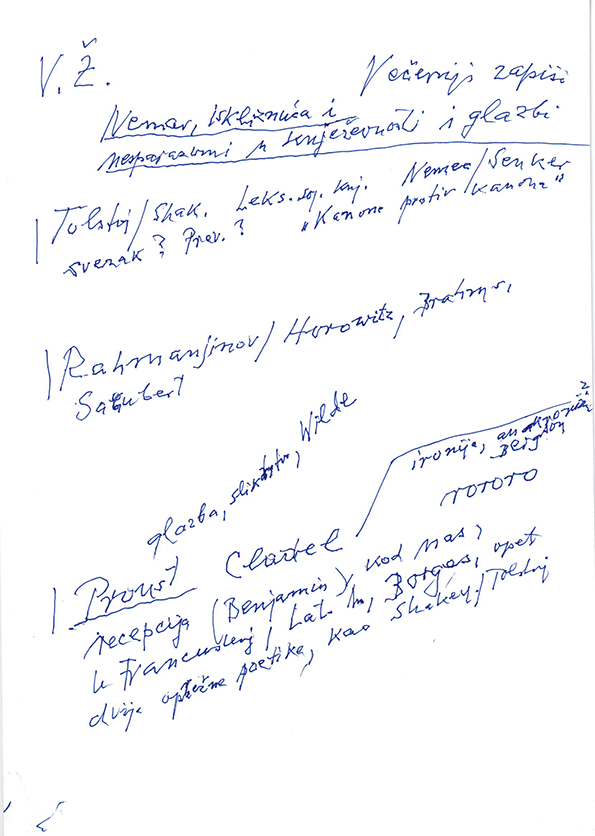 V. Ž.
Večernji zapisi
Nemar, iskliznuća i
nesporazumi u književnosti i glazbi
Tolstoj/Shak. Leks. Nemec/Senker
svezak? Prev.? "Kanon protiv kanona"
Rahmanjinov/Horowitz, Brahms,
Schubert
glazba, slikarstvo, Wilde
ironija,
Bergson
rororo
Proust
recepcija (Benjamin), kod nas,
u Francuskoj/Lat. Am, Borges, opet
dvije oprečne poetike, kao Shakey./Tolstoj